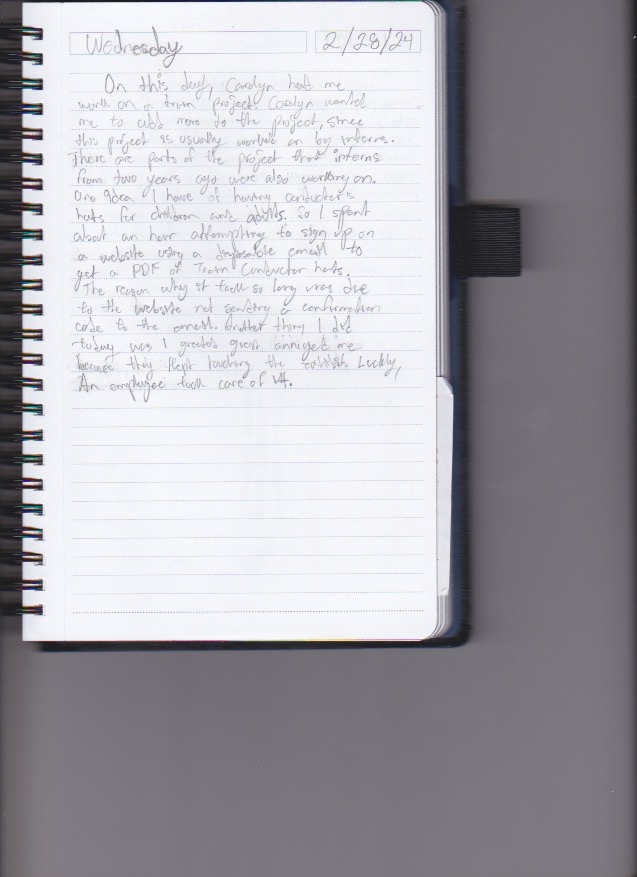 Wednesday
2/28/24
On this day, Carolyn had me
work on a train project. Carolyn wanted
me to add more to the project, since
this project is usually worked on by interns.
There are parts of the project that interns
from two years ago were also working on.
One idea I have of having conductor's
hats for children and adults. So I spent
about an hour attempting to sign up on
a website using a disposable email to
get a PDF of Train Conductor hats.
The reason why it took so long was due
to the website not sending a confirmation
code to the email. Another thing I did
today was I greeted guest annoyed me
because they kept touching the Luckly,
An employee took care of it.